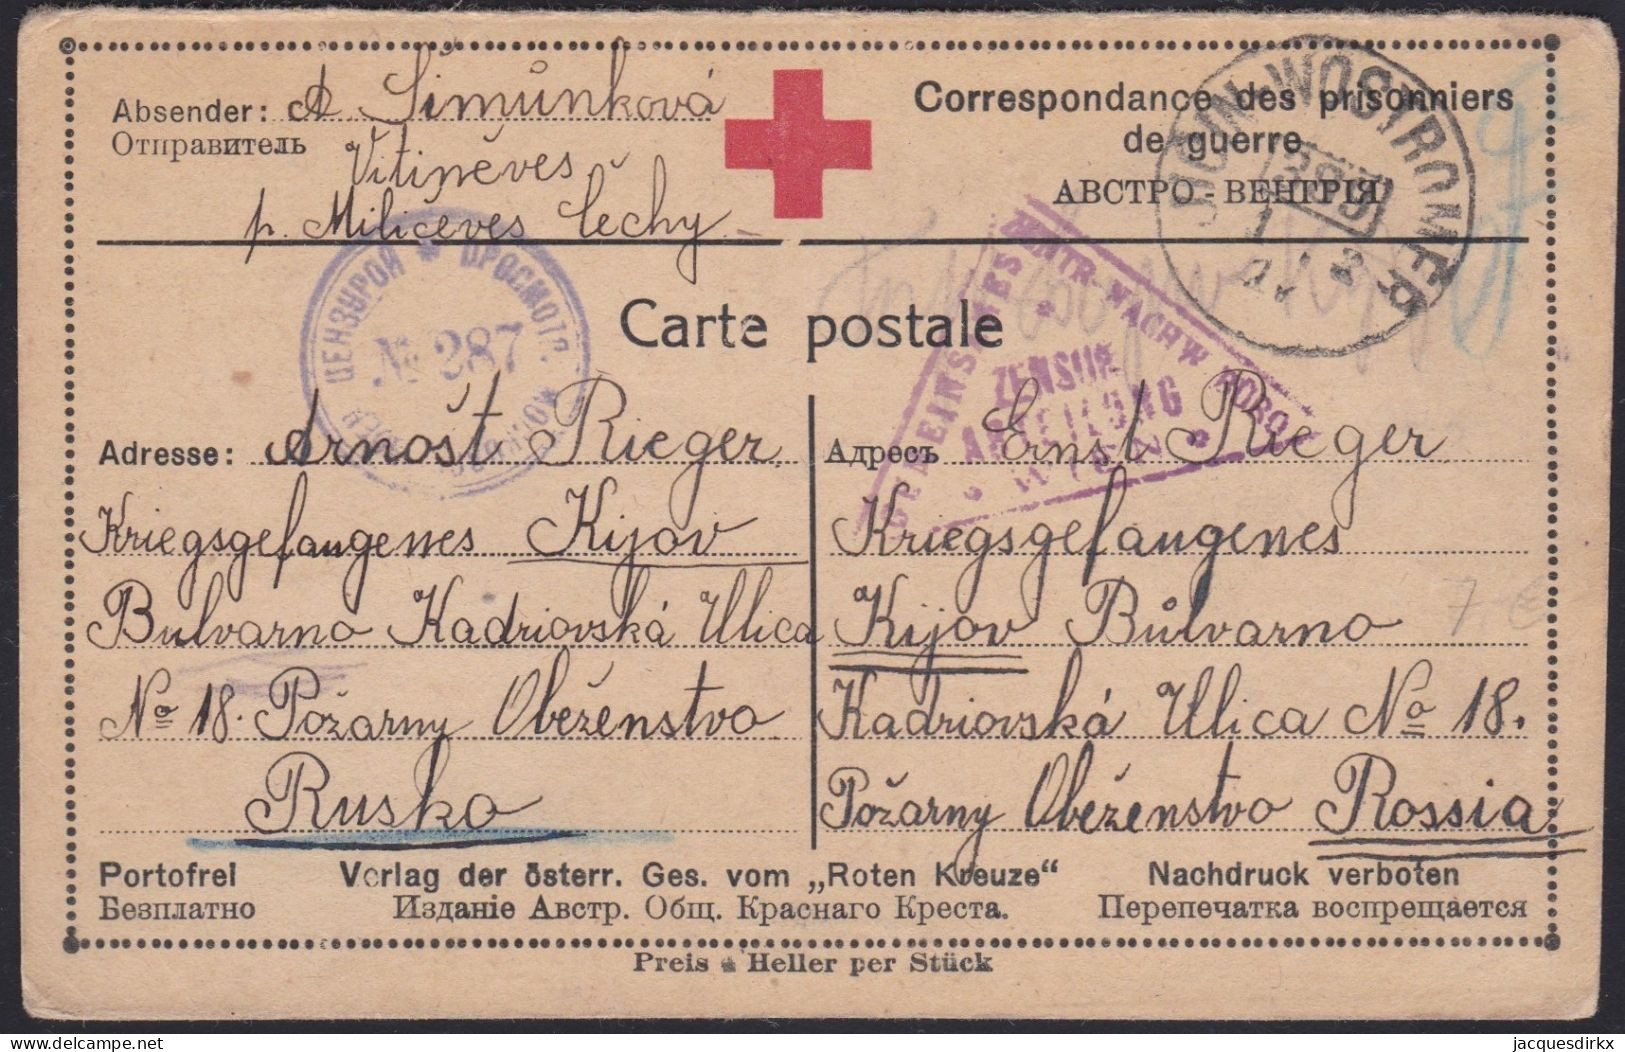 Absender: A. Šimůnková
Отправитель
Vitiněves
p. Miličeves Čechy
Correspondance des prisonniers
de guerre
АВСТРО-ВЕНГРІЯ
WOSTROMĚR
395
ЦЕНЗУРОЙ * ПРОСМОТР.
№ 287
GEMEINSAMES ZENTR-NACHW
ZENSUR
ABTEILUNG
WIEN
Carte postale
Adresse: Arnošt Rieger
Kriegsgefangenes Kijov
Bulvarno Kadriovská Ulica
No 18. Požarny Obeženstvo
Rusko
Адресъ Ernst Rieger
Kriegsgefangenes
Kijov Bůlvarno
Kadriovská Ulica No 18.
Požarny Obeženstvo Rossia
7.-€
Portofrei Verlag der österr. Ges. vom „Roten Kreuze“ Nachdruck verboten
Безплатно Изданіе Австр. Общ. Краснаго Креста. Перепечатка воспрещается
Preis Heller per Stück
jacquesdirkx